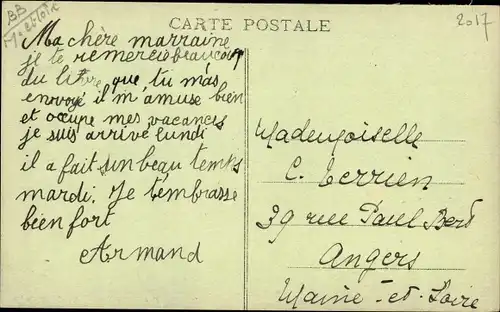 BB
CARTE POSTALE
2017
Ma chère marraine
je te remercie beaucoup
du livre que tu m'as
envoyé il m'amuse bien
et occupe mes vacances
je suis arrivé lundi
il a fait un beau temps
mardi. Je t'embrasse
bien fort
Armand
Mademoiselle
C. Terrien
39 rue Paul Bert
Angers
Maine-et-Loire